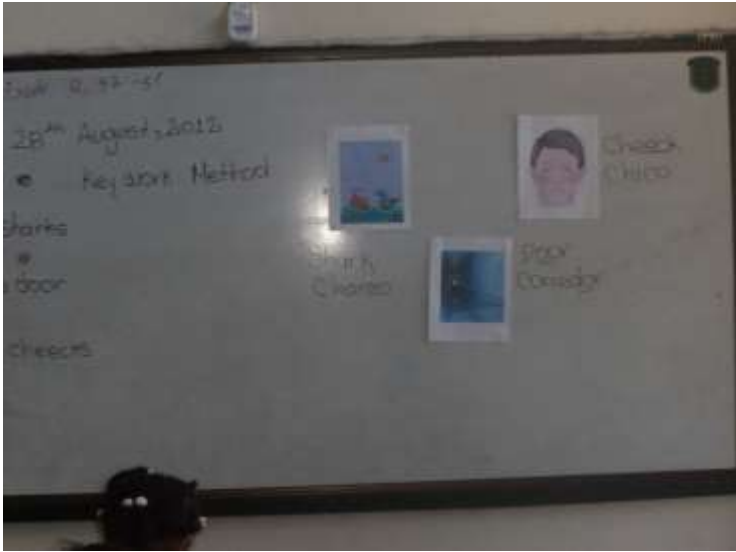 28th August, 2012
• Keywork Method
sharks
door
cheecks
Shark
Charco
Cheeck
Chico
Door
Corredor